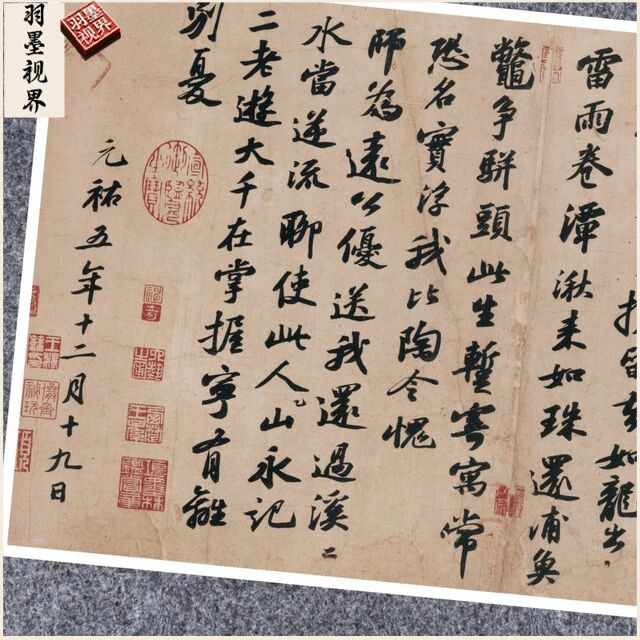 羽墨視界
羽墨视界
如龍出
雷雨卷潭湫来如珠還浦魚
鼈争駢頭此生蹔寄寓常
恐名實浮我比陶令愧
師為遠公優送我還過溪二
水當逆流聊使此人山永記
二老遊大千在掌握寧有離
别憂
元祐五年十二月十九日